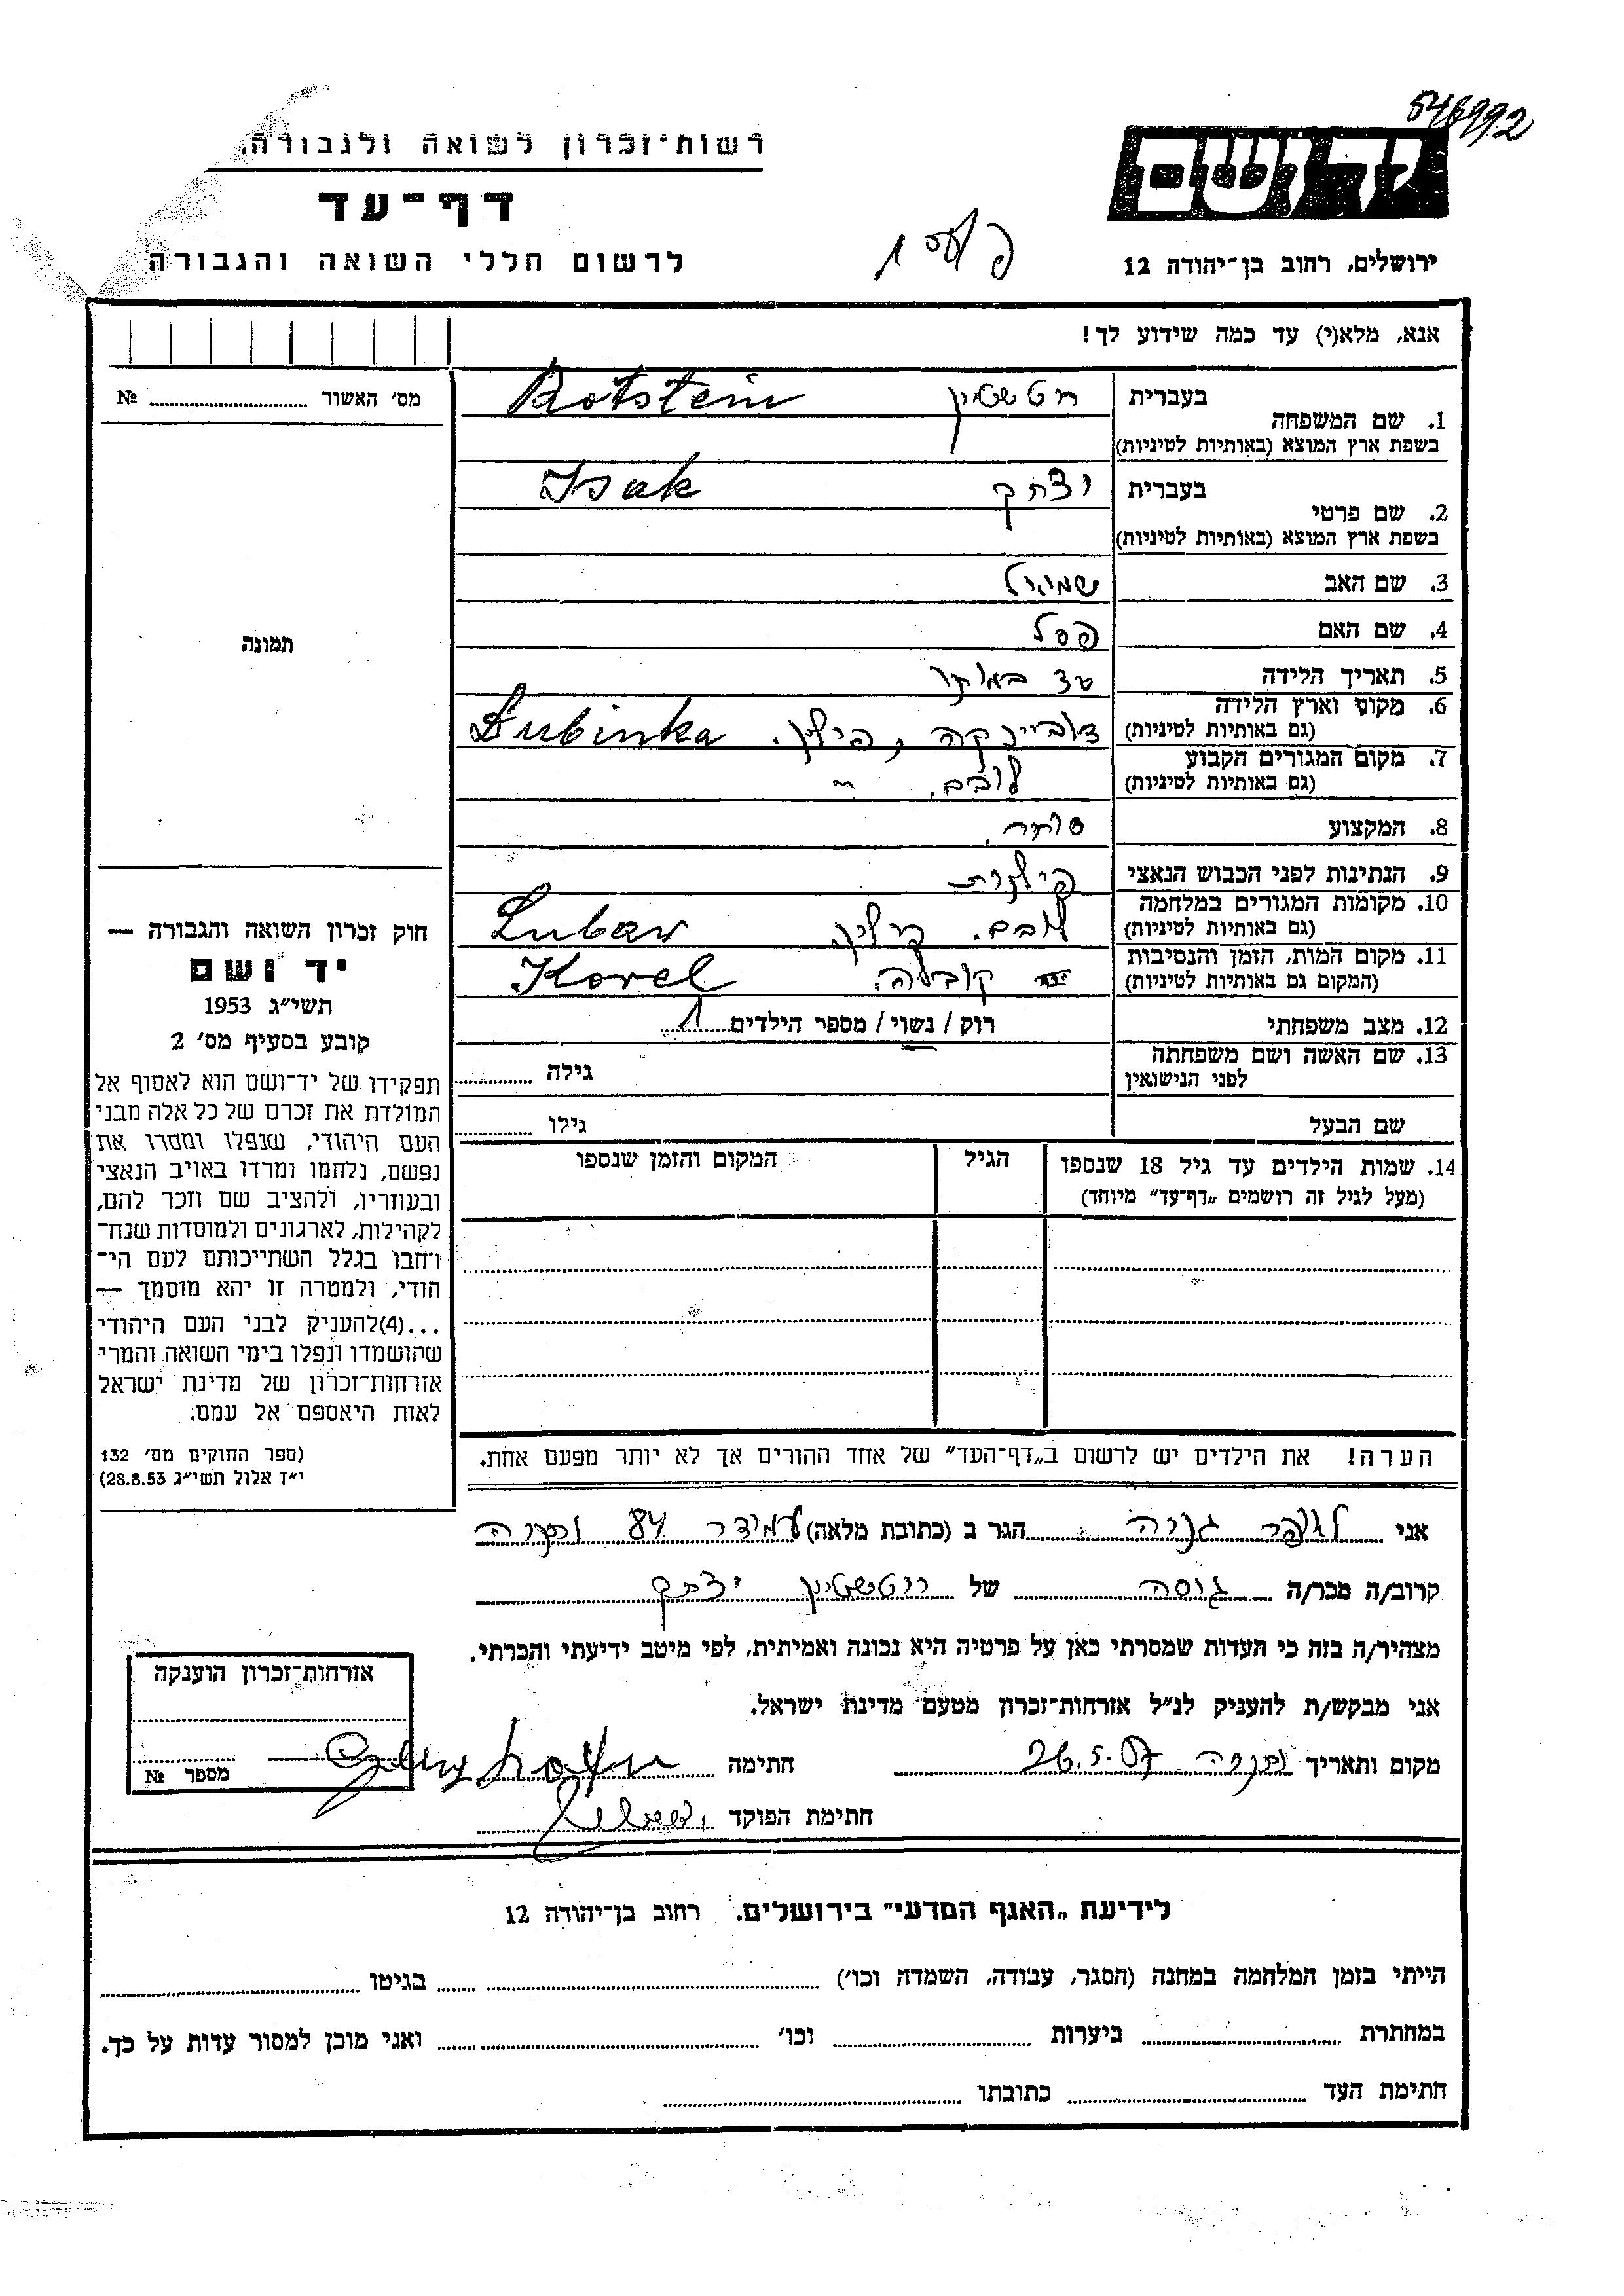 546992
רשות־זכרון לשואה ולגבורה.
דף־עד
לרשום חללי השואה והגבורה
יד ושם
ירושלים, רחוב בן־יהודה 12
אנא, מלא(י) עד כמה שידוע לך!
מס׳ האשור № 
1. שם המשפחה
בעברית רוטשטיין
בשפת ארץ המוצא (באותיות לטיניות) Rotstein
2. שם פרטי
בעברית יצחק
בשפת ארץ המוצא (באותיות לטיניות) Isak
3. שם האב שמואל
4. שם האם פסל
5. תאריך הלידה
6. מקום וארץ הלידה
(גם באותיות לטיניות) פולין. Dubinka
7. מקום המגורים הקבוע
(גם באותיות לטיניות)
8. המקצוע סוחר.
9. הנתינות לפני הכבוש הנאצי פולנית
10. מקומות המגורים במלחמה
(גם באותיות לטיניות) Lubav
11. מקום המות, הזמן והנסיבות
(המקום גם באותיות לטיניות) קובלה. Kovel
12. מצב משפחתי רוק / נשוי / מספר הילדים 1
13. שם האשה ושם משפחתה
לפני הנישואין
גילה
שם הבעל גילו
14. שמות הילדים עד גיל 18 שנספו
(מעל לגיל זה רושמים „דף־עד״ מיוחד)
הגיל
המקום והזמן שנספו
הערה! את הילדים יש לרשום ב„דף־העד״ של אחד ההורים אך לא יותר מפעם אחת.
תמונה
חוק זכרון השואה והגבורה —
יד ושם
תשי״ג 1953
קובע בסעיף מס׳ 2
תפקידו של יד־ושם הוא לאסוף אל
המולדת את זכרם של כל אלה מבני
העם היהודי, שנפלו ומסרו את
נפשם, נלחמו ומרדו באויב הנאצי
ובעוזריו, ולהציב שם וזכר להם,
לקהילות, לארגונים ולמוסדות שנח־
רבו בגלל השתייכותם לעם הי־
הודי, ולמטרה זו יהא מוסמך —
...(4)להעניק לבני העם היהודי
שהושמדו ונפלו בימי השואה והמרי
אזרחות־זכרון של מדינת ישראל
לאות היאספם אל עמם.
(ספר החוקים מס׳ 132
י״ז אלול תשי״ג 28.8.53)
אני הגר ב (כתובת מלאה) 84 נתניה
קרוב/ה מכר/ה גיסה של רוטשטיין יצחק
מצהיר/ה בזה כי העדות שמסרתי כאן על פרטיה היא נכונה ואמיתית, לפי מיטב ידיעתי והכרתי.
אני מבקש/ת להעניק לנ״ל אזרחות־זכרון מטעם מדינת ישראל.
מקום ותאריך נתניה 26.5.57 חתימה
חתימת הפוקד
אזרחות־זכרון הוענקה
מספר №
לידיעת „האגף המדעי״ בירושלים. רחוב בן־יהודה 12
הייתי בזמן המלחמה במחנה (הסגר, עבודה, השמדה וכו׳) בגיטו
במחתרת ביערות וכו׳ ואני מוכן למסור עדות על כך.
חתימת העד כתובתו